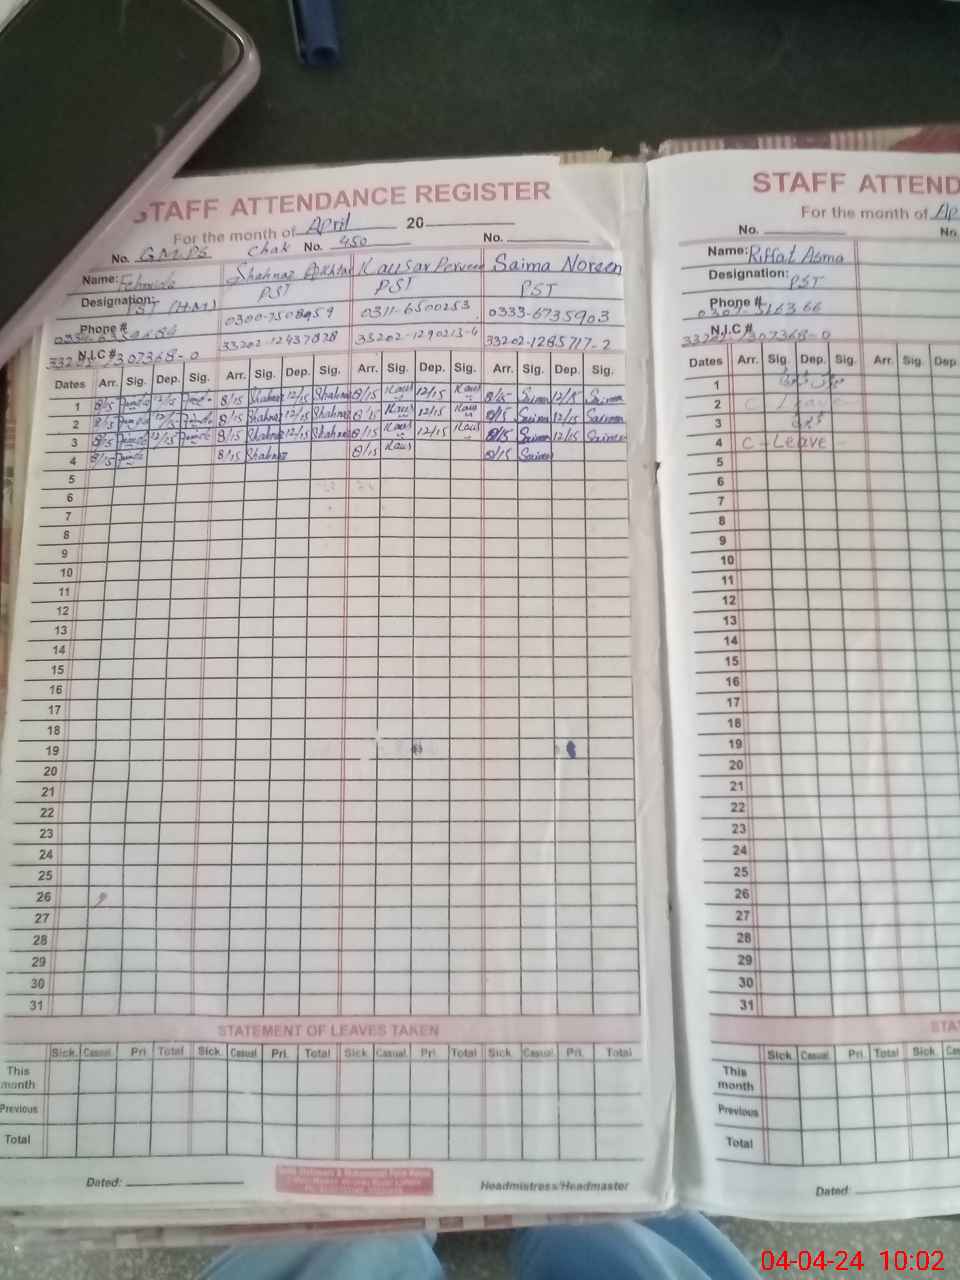 STAFF ATTENDANCE REGISTER
For the month of April 20
No. G.M.P.S Chak No. 450 No.
Name: Fehmida Shahnaz Akhtar Kausar Perveen Saima Noreen
Designation: PST (H.M) PST PST PST
Phone # 0300-7508959 0311-6500253 0333-6735903
N.I.C # 33202-1307368-0 33202-12437828 33202-1290213-4 33202-1285717-2
Dates Arr. Sig. Dep. Sig. Arr. Sig. Dep. Sig. Arr. Sig. Dep. Sig. Arr. Sig. Dep. Sig.
1 8/15 12/15 8/15 Shahnaz 12/15 Shahnaz 8/15 Kaus 12/15 Kaus 8/15 Saima 12/15 Saima
2 8/15 12/15 8/15 Shahnaz 12/15 Shahnaz 8/15 Kaus 12/15 Kaus 8/15 Saima 12/15 Saima
3 8/15 12/15 8/15 Shahnaz 12/15 Shahnaz 8/15 Kaus 12/15 Kaus 8/15 Saima 12/15 Saima
4 8/15 8/15 Shahnaz 8/15 Kaus 8/15 Saima
5
6
7
8
9
10
11
12
13
14
15
16
17
18
19
20
21
22
23
24
25
26
27
28
29
30
31
STATEMENT OF LEAVES TAKEN
Sick. Casual. Pri. Total Sick. Casual. Pri. Total Sick. Casual. Pri. Total Sick. Casual. Pri. Total
This month
Previous
Total
Dated:
Headmistress/Headmaster
STAFF ATTEND
For the month of Ap
No. No.
Name: Riffat Asma
Designation: PST
Phone #
N.I.C # 33202-1307368-0
Dates Arr. Sig. Dep. Sig. Arr. Sig. Dep
1
2 C Leave
3
4 C - Leave -
5
6
7
8
9
10
11
12
13
14
15
16
17
18
19
20
21
22
23
24
25
26
27
28
29
30
31
STA
Sick. Casual. Pri. Total Sick. Cas
This month
Previous
Total
Dated:
04-04-24 10:02